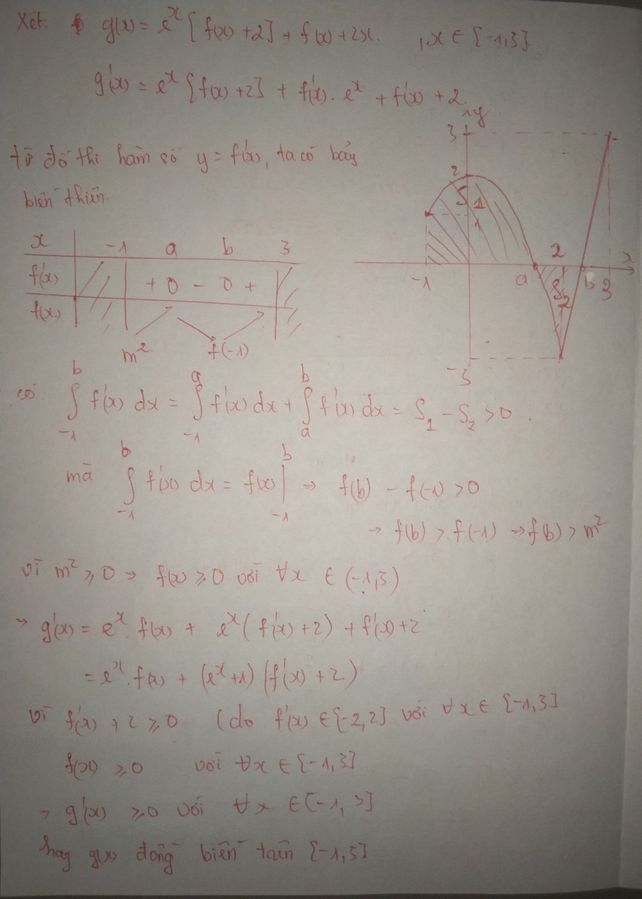 Xét: g(x) = e^x [f(x) + 2] + f(x) + 2x. , x ∈ [-1,3]
g'(x) = e^x [f(x) + 2] + f'(x). e^x + f'(x) + 2
từ đồ thị hàm số y = f'(x), ta có bảng
biến thiên.
x -1 a b 3
f'(x) + 0 - 0 +
f(x)
m² f(-1)
y
3
2
S 1
1
-1 a 2 b 3 x
S2
-3
có ∫_{-1}^{b} f'(x) dx = ∫_{-1}^{a} f'(x) dx + ∫_{a}^{b} f'(x) dx = S1 - S2 > 0.
mà ∫_{-1}^{b} f'(x) dx = f(x) |_{-1}^{b} → f(b) - f(-1) > 0
→ f(b) > f(-1) → f(b) > m²
vì m² ≥ 0 → f(x) ≥ 0 với ∀x ∈ (-1,3)
→ g'(x) = e^x. f(x) + e^x (f'(x) + 2) + f'(x) + 2
= e^x. f(x) + (e^x + 1) (f'(x) + 2)
vì f'(x) + 2 ≥ 0 (do f'(x) ∈ [-2,2] với ∀x ∈ [-1,3]
f(x) ≥ 0 với ∀x ∈ [-1,3]
→ g'(x) ≥ 0 với ∀x ∈ [-1,3]
hay g(x) đồng biến trên [-1,3]